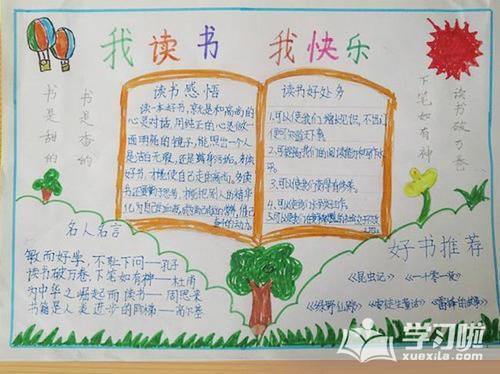 我读书 我快乐
书是香的
书是甜的
读书破万卷
下笔如有神
读书感悟
读一本好书,就是和高尚的
心灵对话,用纯正的心灵做一
面明亮的镜子,能照出一个人
是洁白无瑕,还是
好书,才能使自己走向高尚。
读书好处多
1.可以使我们增长知识,不出门
便可知天下事。
2.可提高我们的阅读能力和写作水
平。
3.可以使我们变得有修养。
4.可以使我们
5.可以使我们
名人名言
敏而好学,不耻下问——孔子
读书破万卷,下笔如有神——杜甫
为中华之崛起而读书——周恩来
书籍是人类进步的阶梯——高尔基
好书推荐
《昆虫记》《一千零一夜》
《绿野仙踪》《安徒生童话》《雷锋的故事》
学习啦
xuexila.com